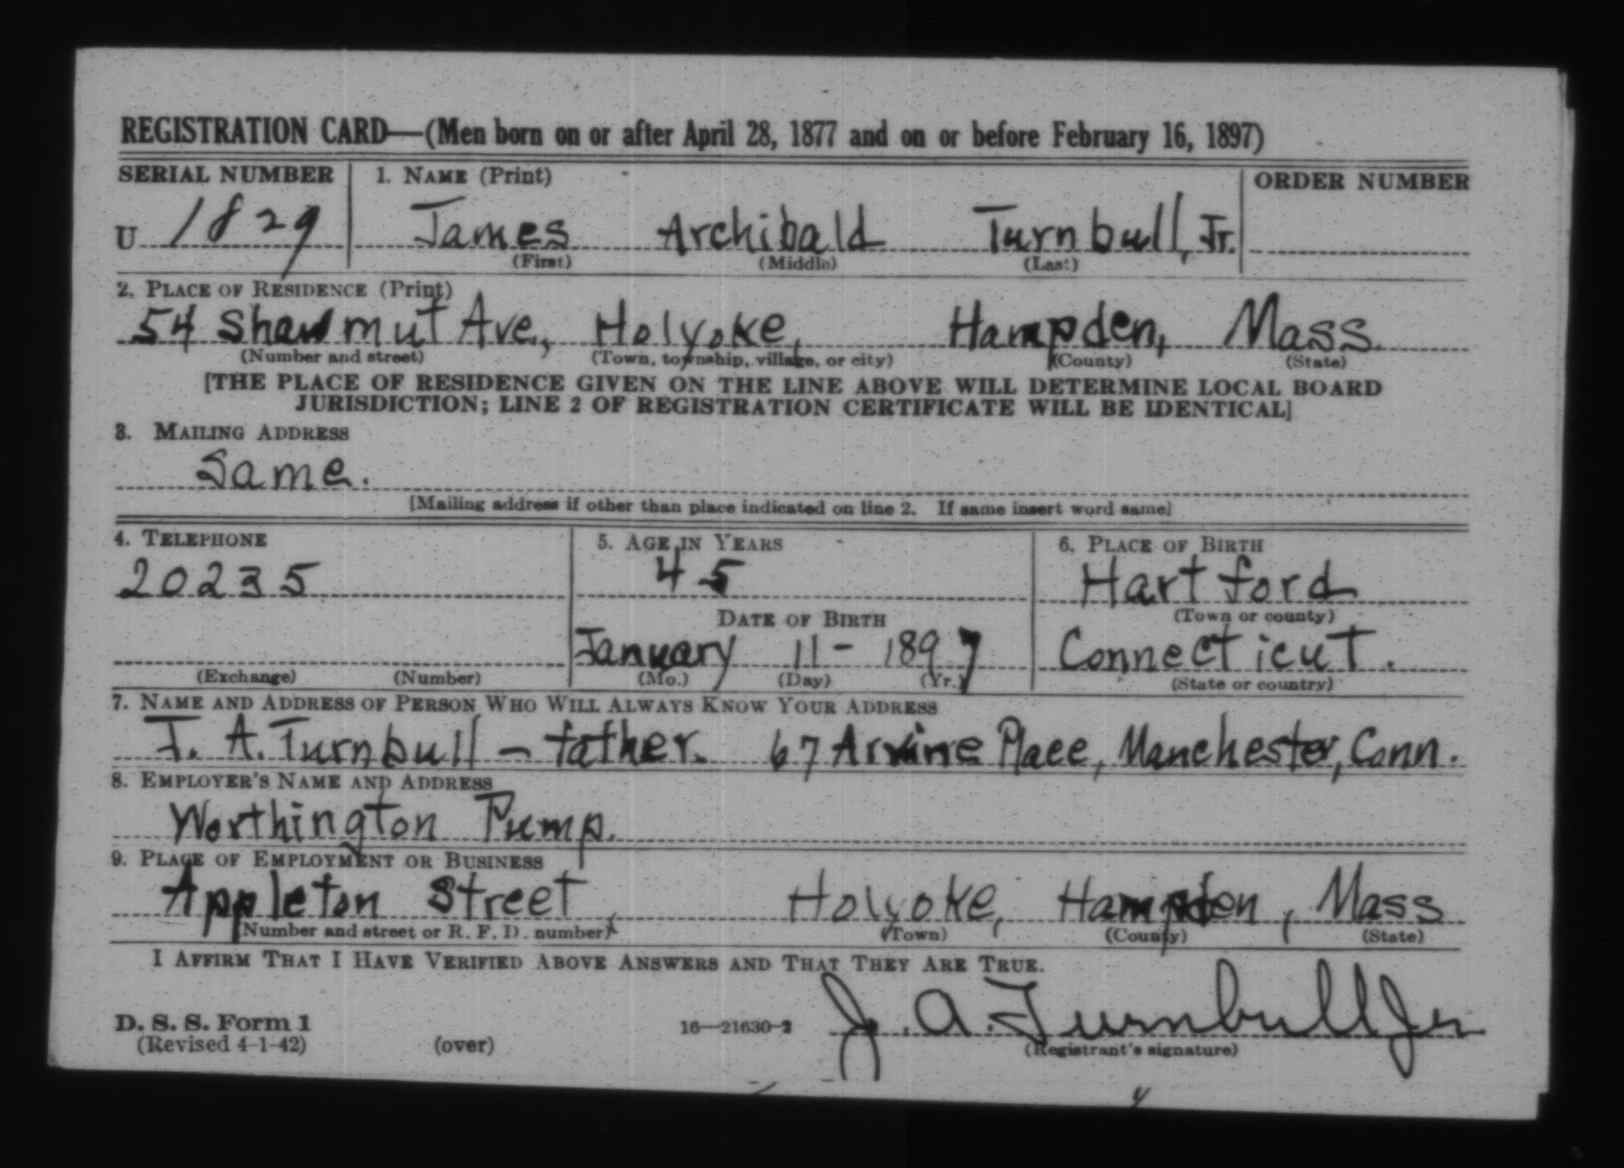 REGISTRATION CARD—(Men born on or after April 28, 1877 and on or before February 16, 1897)
SERIAL NUMBER 1. NAME (Print) ORDER NUMBER
U 1829 James Archibald Turnbull, Jr.
(First) (Middle) (Last)
2. PLACE OF RESIDENCE (Print)
54 Shawmut Ave., Holyoke, Hampden, Mass.
(Number and street) (Town, township, village, or city) (County) (State)
[THE PLACE OF RESIDENCE GIVEN ON THE LINE ABOVE WILL DETERMINE LOCAL BOARD
JURISDICTION; LINE 2 OF REGISTRATION CERTIFICATE WILL BE IDENTICAL]
3. MAILING ADDRESS
Same.
[Mailing address if other than place indicated on line 2. If same insert word same]
4. TELEPHONE 5. AGE IN YEARS 6. PLACE OF BIRTH
20235 45 Hartford
DATE OF BIRTH (Town or county)
January 11 - 1897 Connecticut.
(Exchange) (Number) (Mo.) (Day) (Yr.) (State or country)
7. NAME AND ADDRESS OF PERSON WHO WILL ALWAYS KNOW YOUR ADDRESS
J. A. Turnbull - father. 67 Place, Manchester, Conn.
8. EMPLOYER'S NAME AND ADDRESS
Worthington Pump.
9. PLACE OF EMPLOYMENT OR BUSINESS
Appleton Street, Holyoke, Hampden, Mass
(Number and street or R. F. D. number) (Town) (County) (State)
I AFFIRM THAT I HAVE VERIFIED ABOVE ANSWERS AND THAT THEY ARE TRUE.
D. S. S. Form 1 16—21630-2 J. A. Turnbull Jr
(Revised 4-1-42) (over) (Registrant's signature)